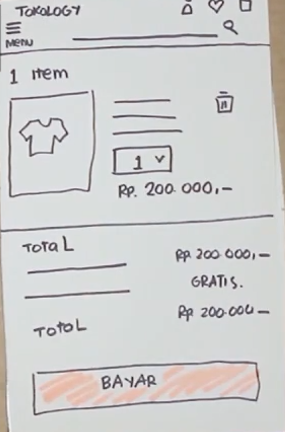 TOKOLOGY
MENU
1 Item
1
Rp. 200.000,-
TOTAL
Rp 200.000,-
GRATIS.
TOTOL
Rp 200.000-
BAYAR